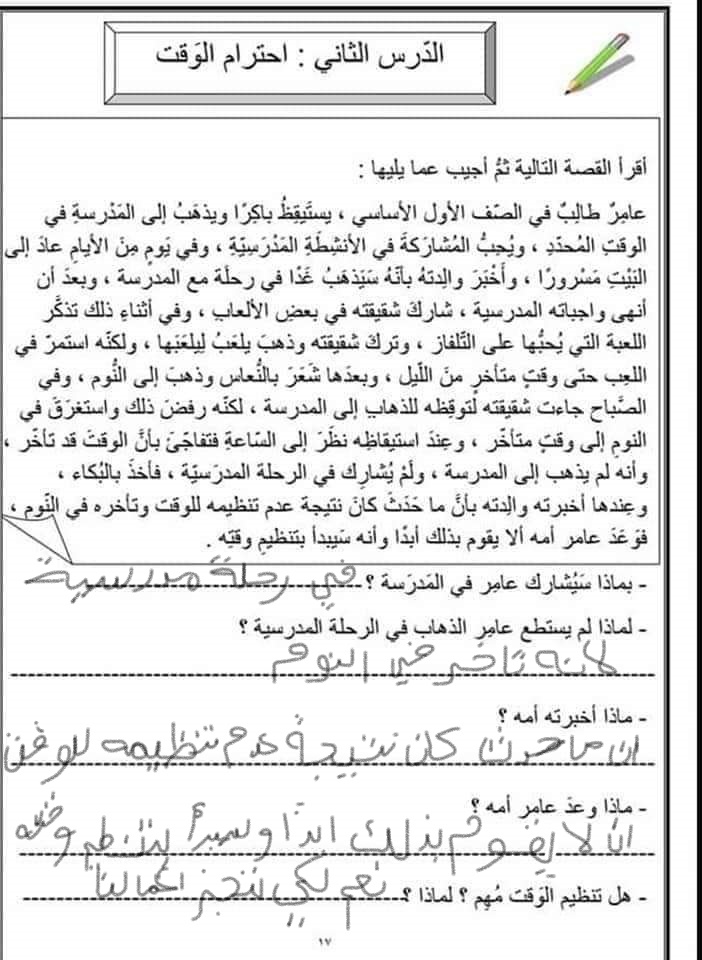 الدّرس الثاني : احترام الوَقت
أقرأ القصة التالية ثمُّ أجيب عما يليها :
عامِرٌ طالِبٌ في الصّف الأول الأساسي ، يستَيقِظُ باكِرًا ويذهَبُ إلى المَدْرسةِ في
الوقتِ المُحدّدِ ، ويُحِبُّ المُشارَكةَ في الأنشِطَةِ المَدْرَسِيّةِ ، وفي يَومٍ مِنَ الأيامِ عادَ إلى
البَيْتِ مَسْرورًا ، وأَخْبَرَ والِدتهُ بأنّهُ سَيَذهَبُ غَدًا في رحلَة مع المدرسة ، وبعدَ أن
أنهى واجباته المدرسية ، شاركَ شقيقته في بعضِ الألعابِ ، وفي أثناءِ ذلك تذكَّر
اللعبة التي يُحبُّها على التّلفاز ، وتركَ شقيقته وذهبَ يلعَبُ لِيلعَبَها ، ولكنّه استمرّ في
اللعِب حتى وقتٍ متأخرٍ منَ اللّيل ، وبعدَها شَعَرَ بالنُّعاس وذهبَ إلى النُّوم ، وفي
الصَّباح جاءت شقيقته لُتوقِظه للذهابِ إلى المدرسة ، لكنّه رفضَ ذلك واستغرَقَ في
النومِ إلى وقتٍ متأخّر ، وعِندَ استيقاظِه نظَرَ إلى السّاعةِ فتفاجّئ بأنَّ الوقتَ قد تأخّر ،
وأنه لم يذهب إلى المدرسة ، ولَمْ يُشارِك في الرحلة المدرَسيّة ، فأخذَ بالبُكاء ،
وعِندها أخبرته والِدته بأنَّ ما حَدَثَ كانَ نتيجة عدم تنظيمه للوقت وتأخره في النّوم ،
فوَعَدَ عامر أمه ألا يقوم بذلك أبدًا وأنه سَيبدأ بتنظيمِ وقتِه .
- بماذا سَيُشارك عامِر في المَدرَسة ؟ في رحلة مدرسية
- لماذا لم يستطع عامِر الذهاب في الرحلة المدرسية ؟
لانه تاخر في النوم
- ماذا أخبرته أمه ؟
ان ما حدث كان نتيجة عدم تنظيمه للوقت
- ماذا وعدَ عامر أمه ؟
ان لا يقوم بذلك ابدًا وسيبدأ بتنظيم وقته
- هل تنظيم الوَقت مُهِم ؟ لماذا ؟ نعم لكي ننجز اعمالنا
١٧